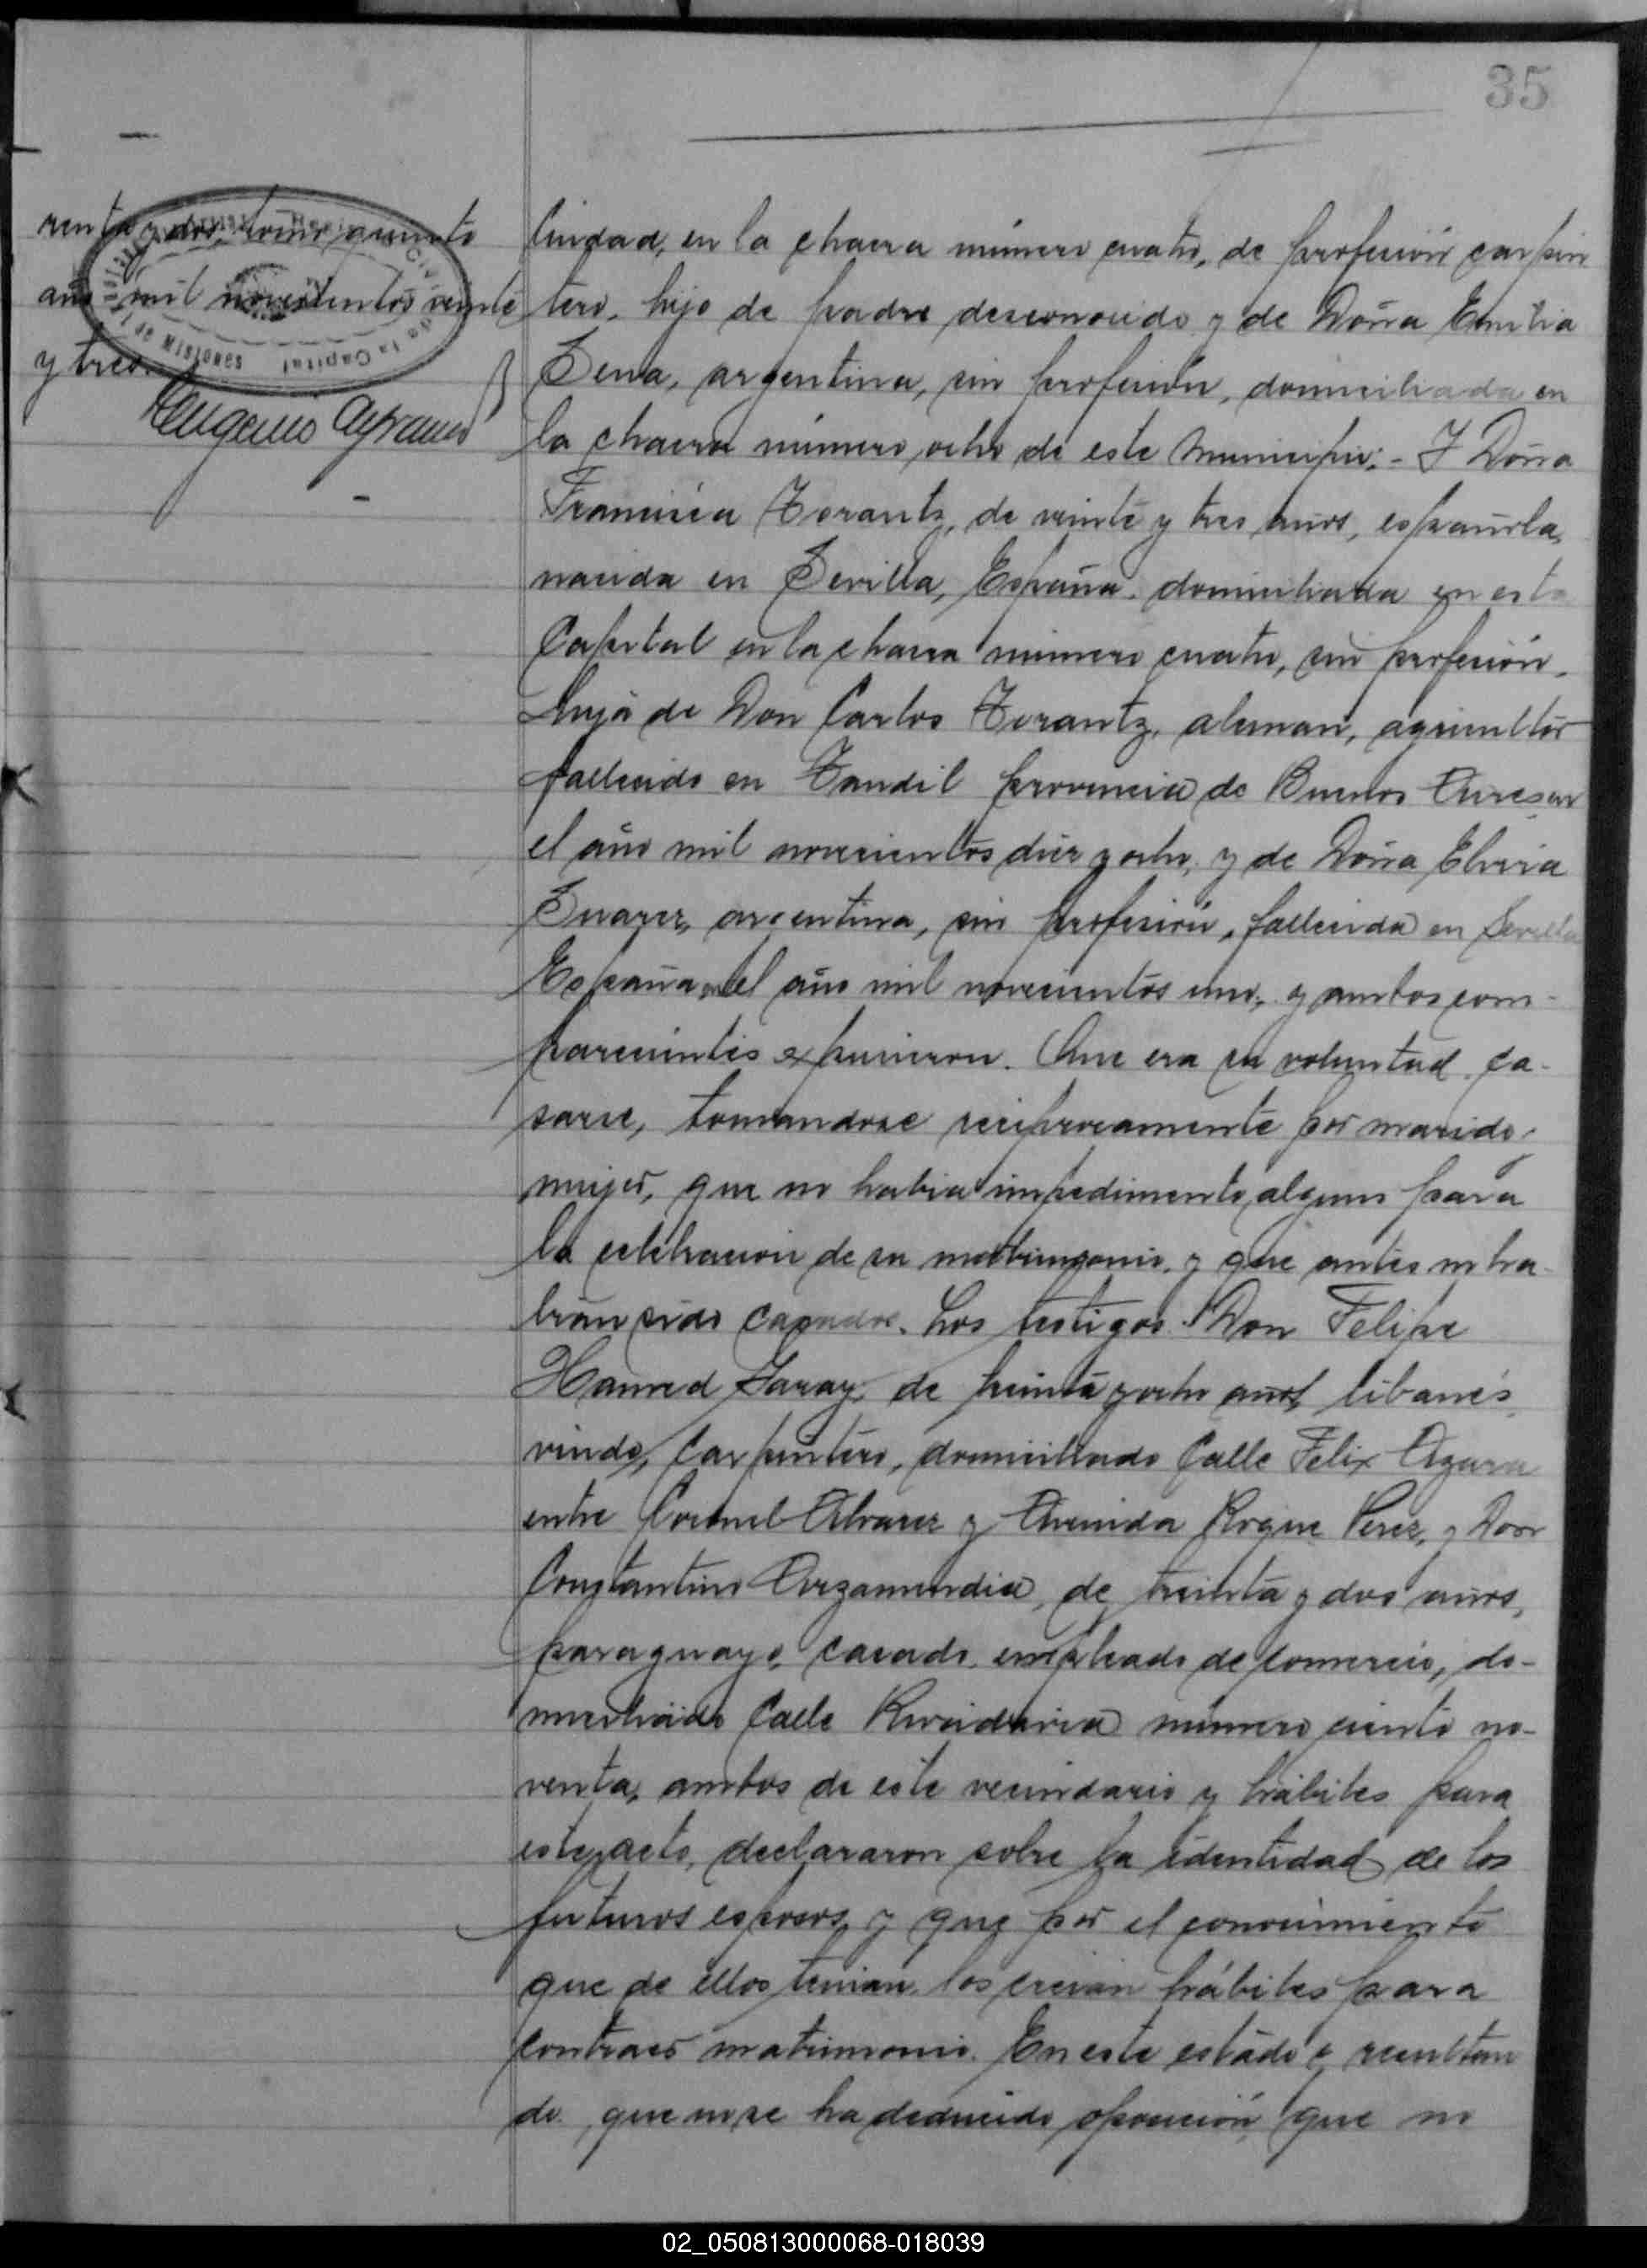 35
renta y dos, tomo quinto
año mil novecientos veinte
y tres.
Registro Civil
de la Capital
de Misiones
Eugenio
Ciudad, en la chacra número cuatro, de profesión carpin
tero, hijo de padre desconocido y de Doña Emilia
Sena, argentina, sin profesión, domiciliada en
la chacra número ocho de este Municipio;- Y Doña
Francisca Torantz, de veinte y tres años, española,
nacida en Sevilla, España, domiciliada en esta
Capital en la chacra número cuatro, sin profesión,
hija de Don Carlos Torantz, aleman, agricultor
fallecido en Tandil provincia de Buenos Aires, en
el año mil novecientos diez y ocho, y de Doña Elvira
Suarez, argentina, sin profesión, fallecida en Sevilla
España, en el año mil novecientos uno, y ambos com-
parecientes expusieron. Que era su voluntad ca-
sarse, tomandose reciprocamente por marido y
mujer, que no habia impedimento alguno para
la celebración de su matrimonio, y que antes no ha-
bian sido casados. Los testigos: Don Felipe
Hamed Garay, de treinta y ocho años, libanés,
viudo, Carpintero, domiciliado Calle Felix Azara
entre Coronel Alvarez y Avenida Roque Perez, y Don
Constantino Arzamendia, de treinta y dos años,
paraguayo, casado, empleado de comercio, do-
miciliado Calle Rivadavia número ciento no-
venta, ambos de este vecindario y hábiles para
este acto, declararon sobre la identidad de los
futuros esposos y que por el conocimiento
que de ellos tenian, los creian hábiles para
contraer matrimonio. En este estado y resultan
do, que no se ha deducido oposición, que no
02_050813000068-018039